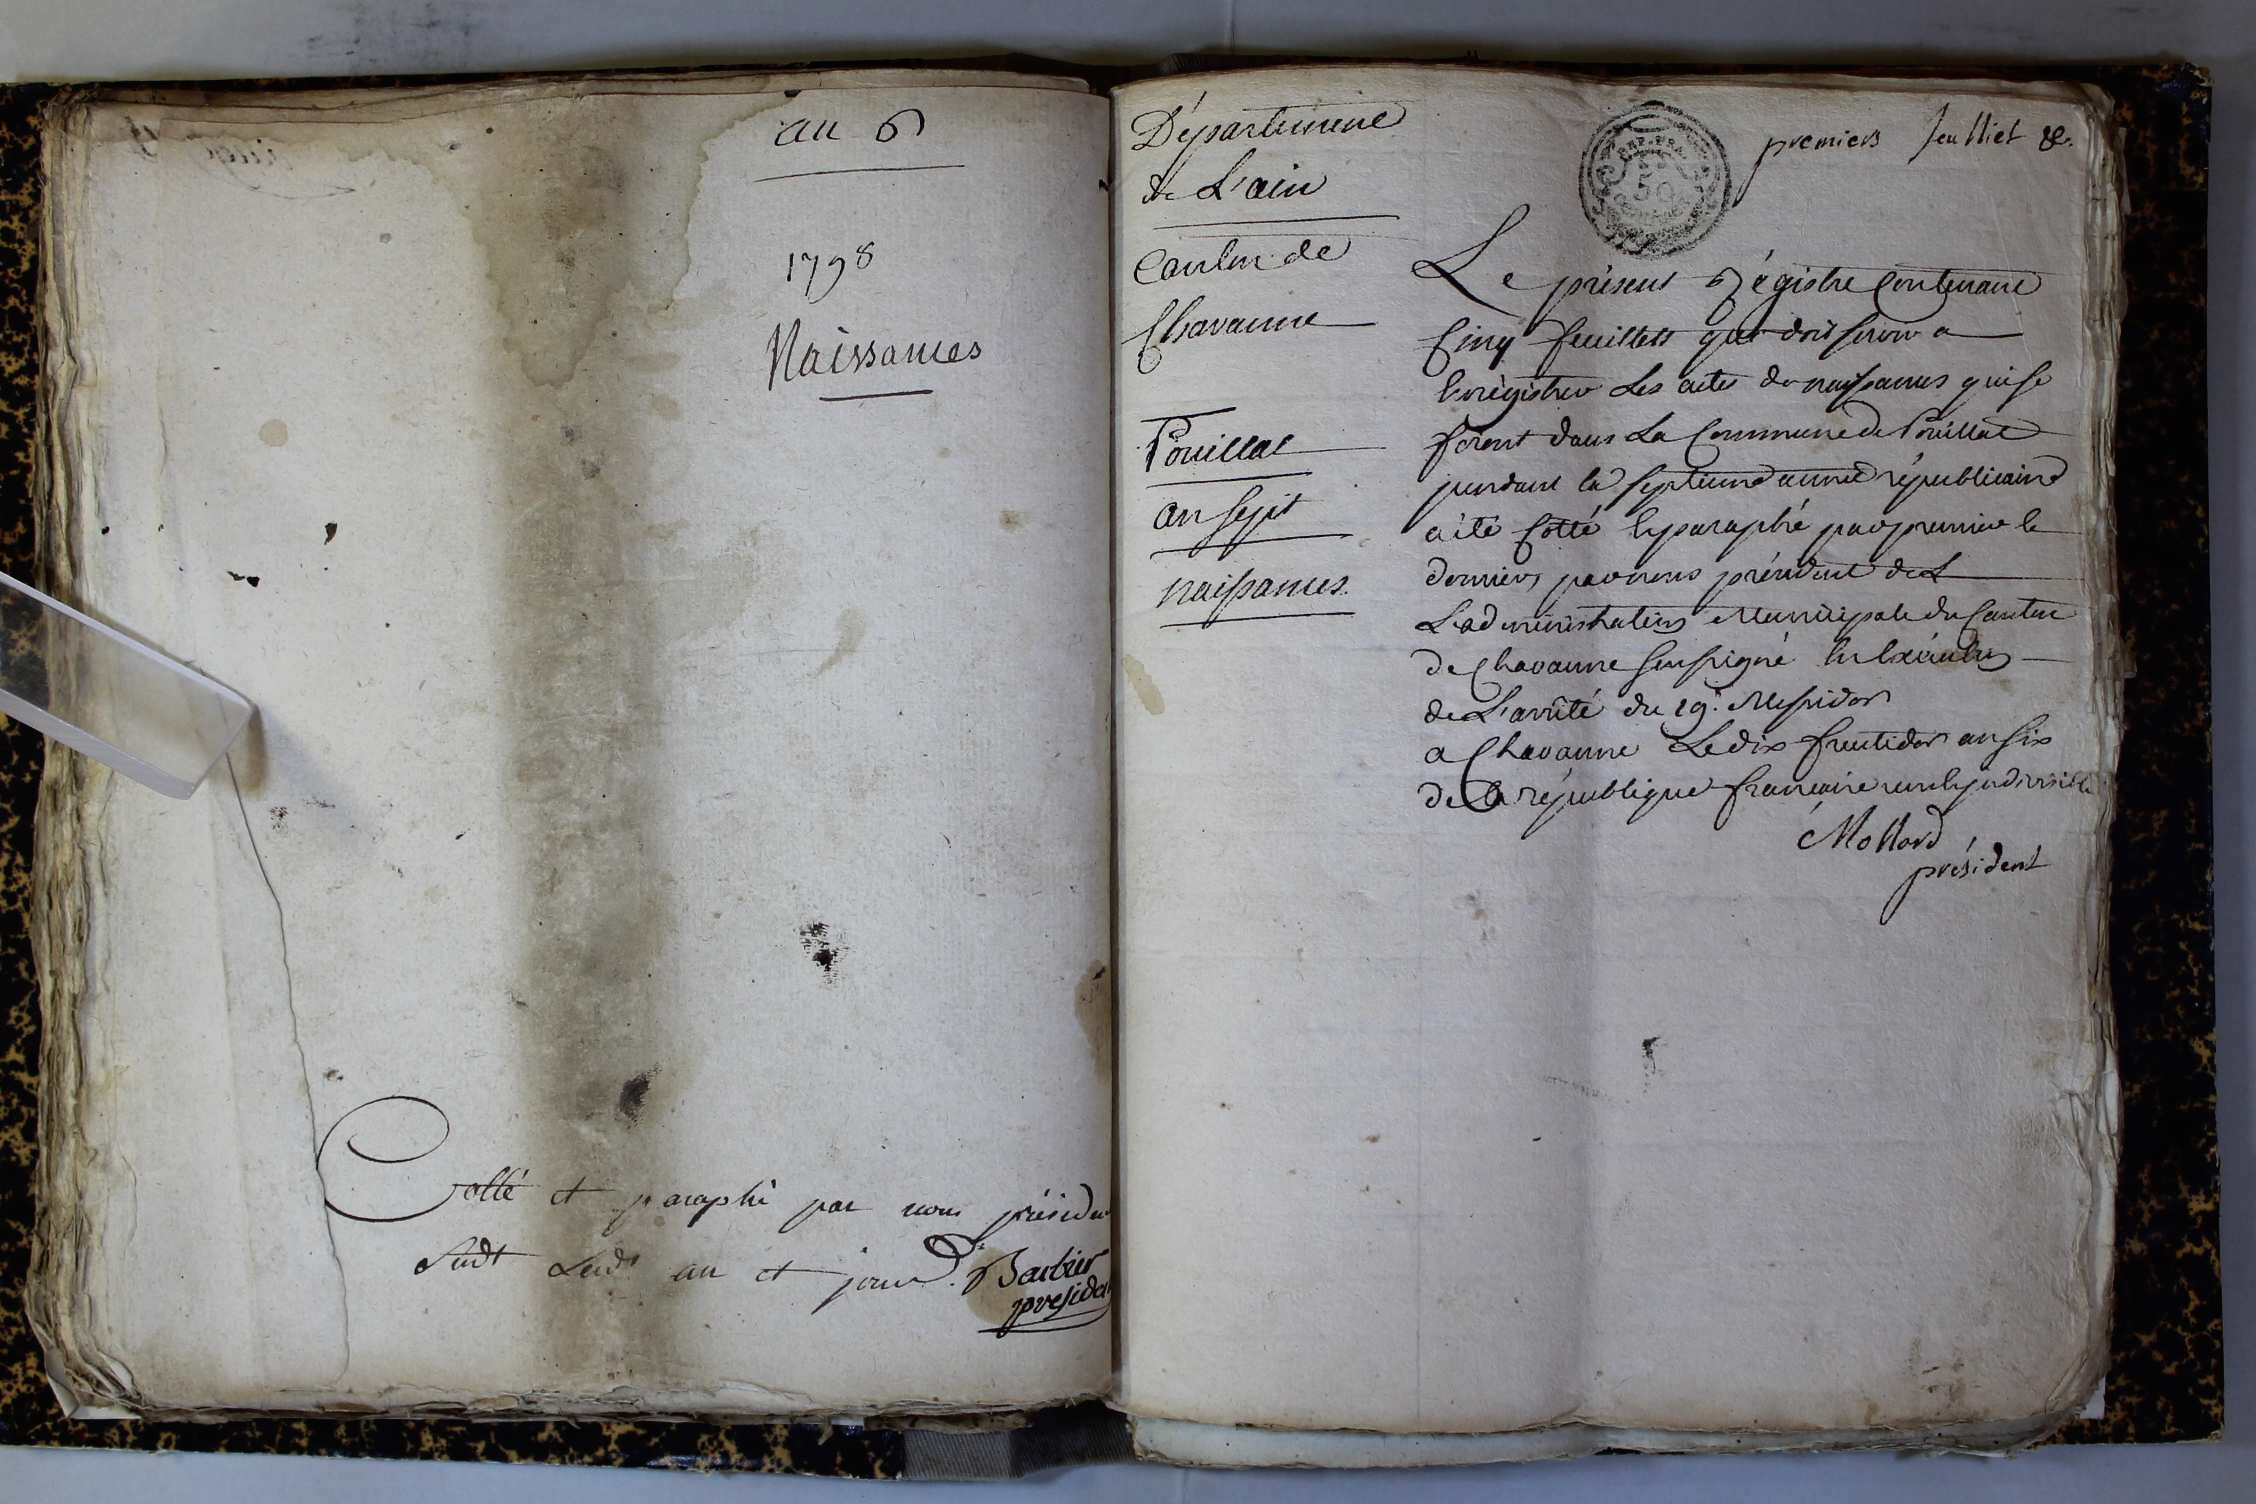 an 6
1798
Naissances
Cotté et paraphé par nous présiden
Sudt Ledt an et jour. Barbier
preside
Département
de L'ain
Canton de
Chavanne
Pouillat
an sept
naissances.
premiers feulliet
REP. FRA.
50
Le présent Régistre Contenant
Cinq feuillets qui doit servir a
Enregistrer Les actes de naissances qui se
feront dans La Commune de Pouillat
pendant la septieme année républicaine
a été Cotté Et paraphé par premier et
dernier, par nous président de L
L'administration Municipale du Canton
de Chavanne soussigné En Exécution
de L'arrêté du 19. Messidor
a Chavanne Le dix fructidor an six
de la république francaise une Et indivisible
Mottard
président